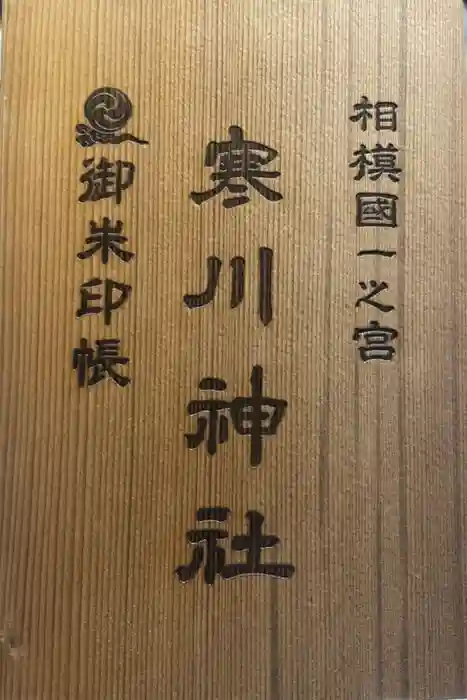 相模國一之宮
寒川神社
御朱印帳